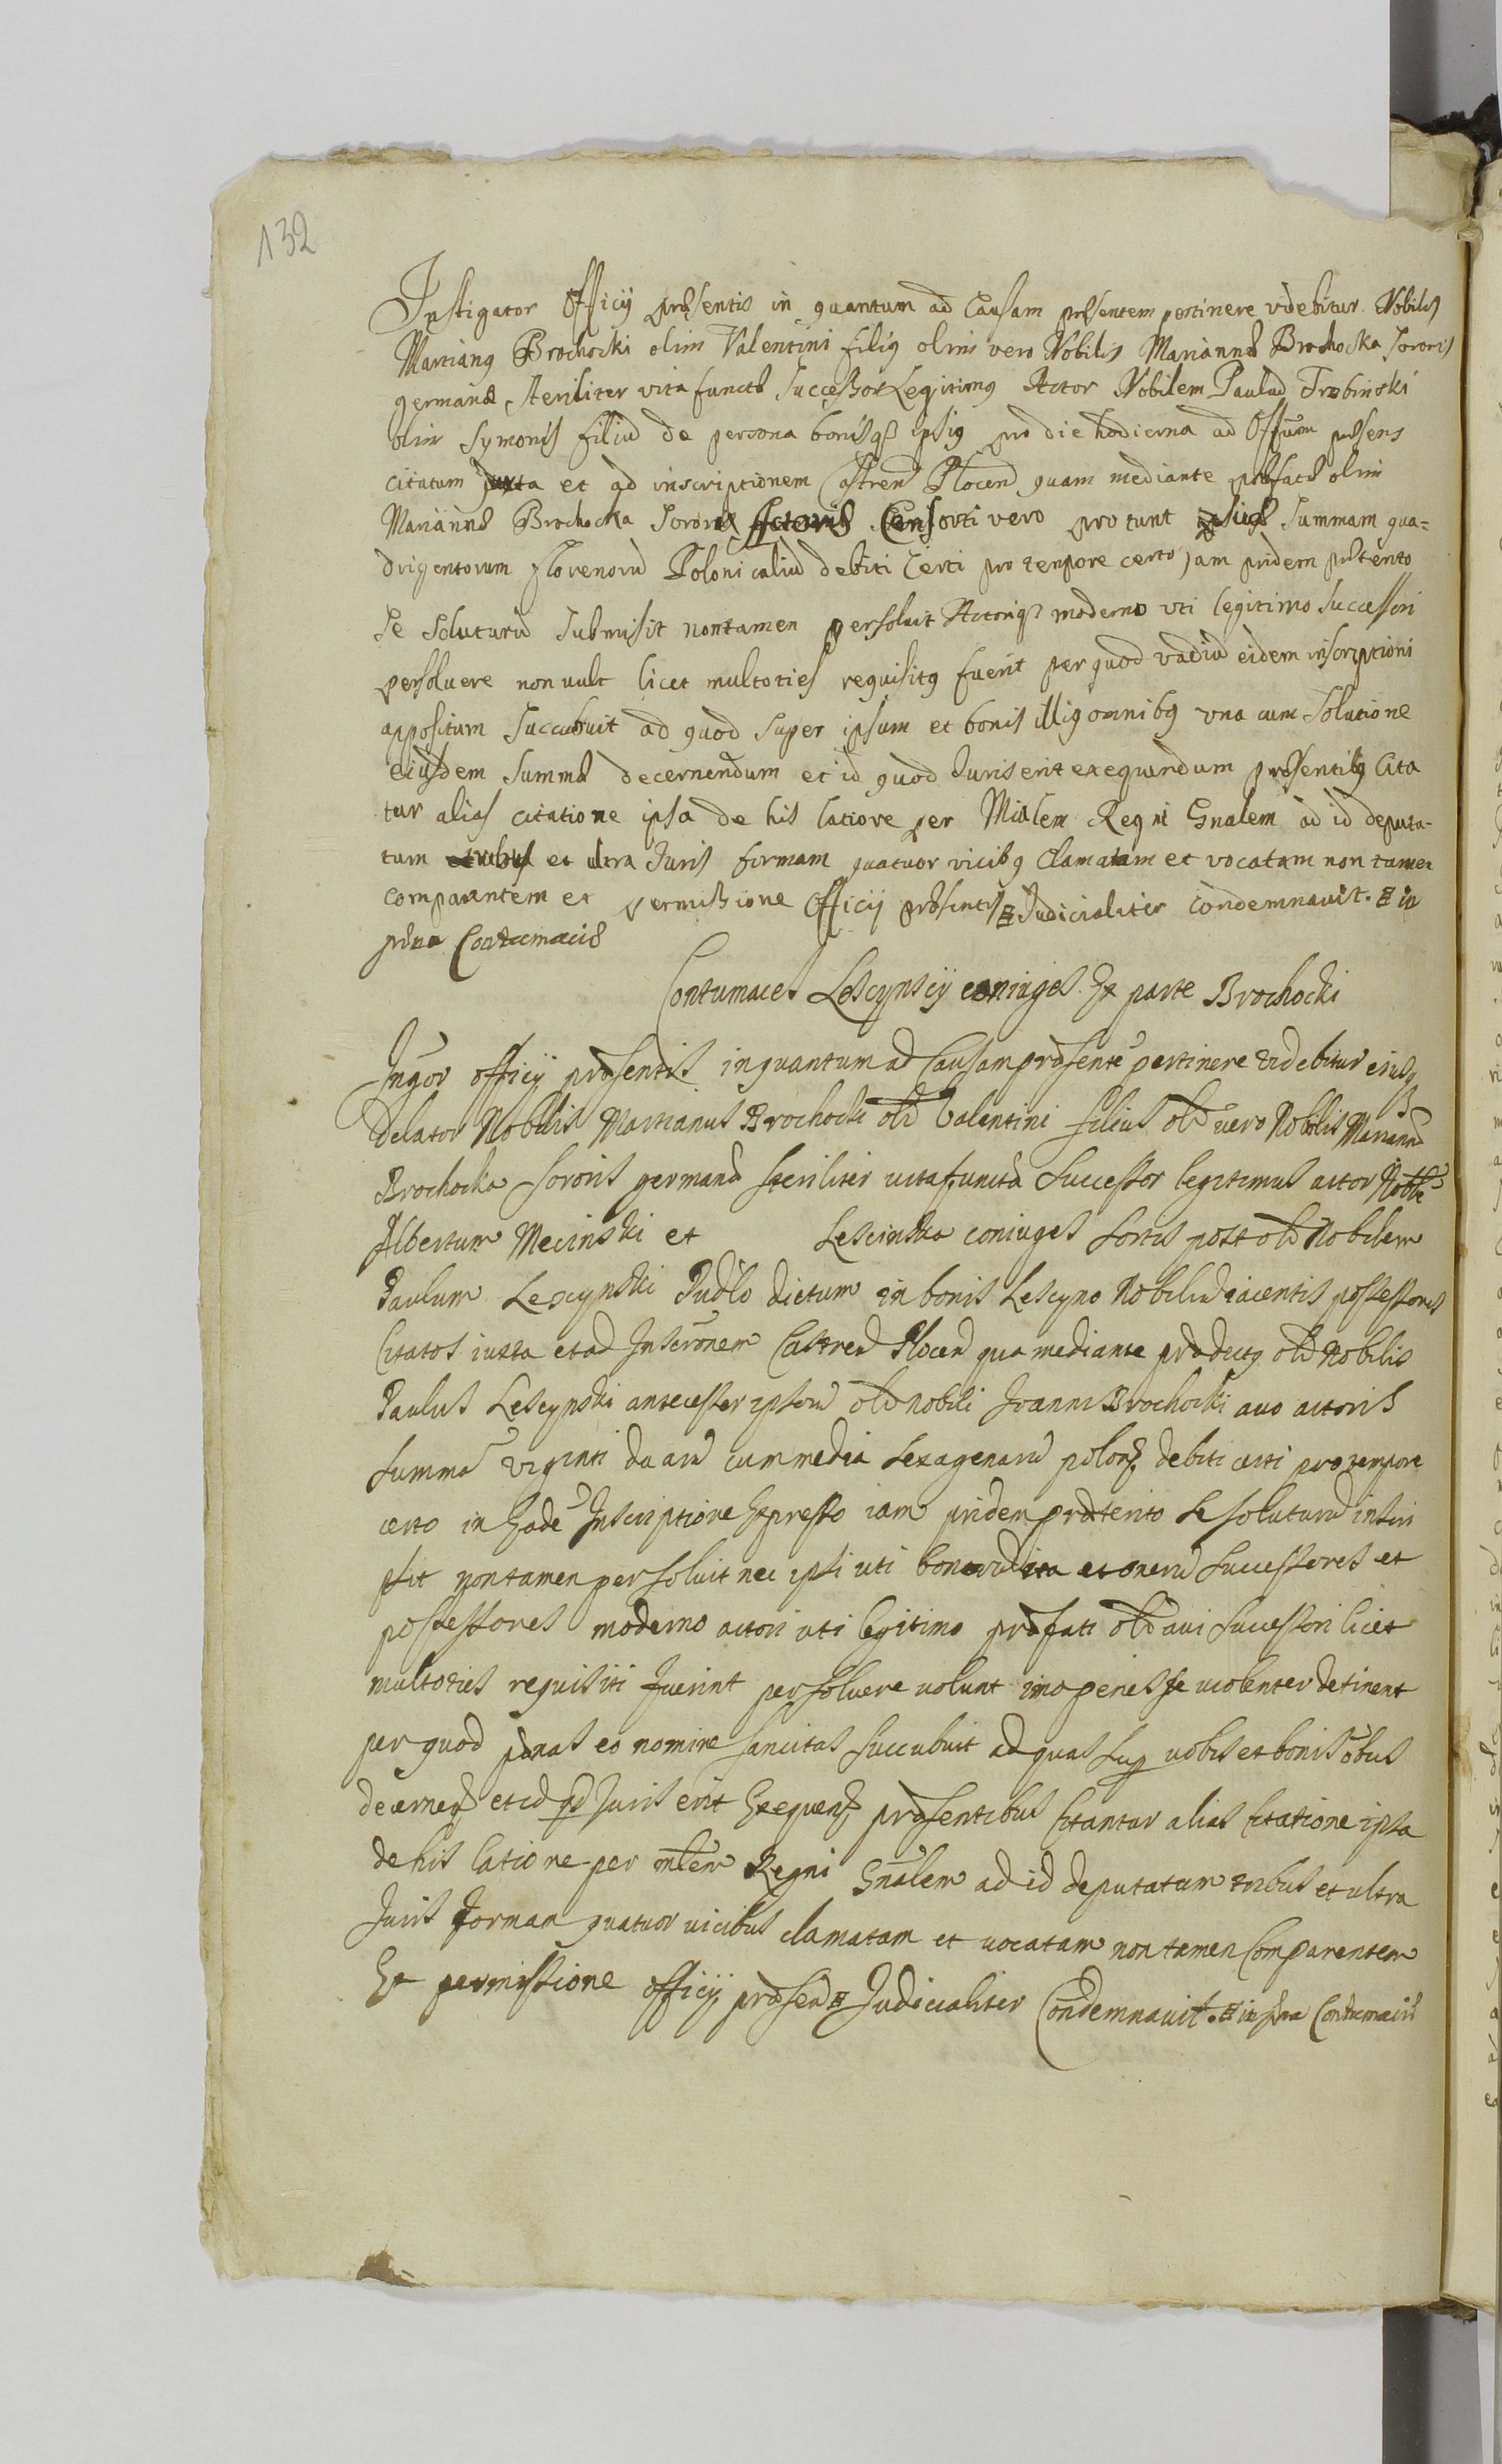 132
Instigator Officij præsentis in quantum ad Causam præsentem pertinere videbitur Nobilis
Martianus Brochocki olim Valentini filius olim vero Nobilis Mariannæ Brochocka Sororis
germanæ steriliter vita functæ Successor Legitimus Actor Nobilem Paulum Trzbinski
olim Symonis filiu de persona bonisqz ipsius pro die hodierna ad Offium præsens
citatum juxta et ad inscriptionem Castren Plocen quam mediante præfatæ olim
Mariannæ Brochocka Sorori Actoris Consorti vero pro tunc Summam qua-
drigentorum florenoru Polonicaliu debiti certi pro tempore certo jam pridem præterito
Se Soluturu Submisit non tamen persoluit Actoriqz moderno uti legitimo Successori
persoluere non uult licet multoties requisitus fuerit per quod vadiu eidem inscriptioni
appositum Succubuit ad quod Super ipsum et bonis illius omnibus una cum Solutione
eiusdem Summæ decernendum et id quod Juris erit exequendum præsentibus Cita
tur alias citatione ipsa de his latiore per Mitlem Regni Gnalem ad id deputa-
tum tribus et ultra Juris formam quatuor vicibus Clamatam et vocatam non tamen
comparentem et permissione Officij præsentis Judicialiter condemnauit. in
pæna Contumaciæ
Contumaces Lescynscij coniuges Ex parte Brochocki
Ingor officij præsentis inquantum ad Causam præsente pertinere videbitur eiusq
delator Nobilis Martianus Brochocki old Valentini filius old vero Nobilis Mariannæ
Brochocka sororis germanæ steriliter uita functæ Successor legitimus actor Nobles
Albertum Mecinski et Lescinska coniuges sortis post old Nobilem
Paulum Lescynski Pudlo dictum in bonis Lescyno Nobiliu iacentis possessores
Citatos iuxta et ad Inscronem Castren Plocen qua mediante prædictus old Nobilis
Paulus Lescynski antecessor ipsoru old nobili Joanni Brochocki auo actoris
summa viginti duaru cum media sexagenaru polon debiti certi pro tempore
certo in Eade Inscriptione Expresso iam pridem præterito se soluturu inscri
psit non tamen persoluit nec ipsi uti bonoru ita et oneru successores et
possessores moderno actori uti legitimo præfati old aui successori licet
multoties requisiti fuerint persoluere nolunt imo penes se uiolenter detinent
per quod pænas eo nomine sancitas succubuit ad quas sup uobis et bonis obus
decernen et id qd Juris erit Exequen præsentibus Citantur alias Citatione ipsa
de his latiore per mtlem Regni Gnalem ad id deputatum tribus et ultra
Juris formam quatuor uicibus clamatam et uocatam non tamen Comparentem
Et permissione officij præsen Judicialiter Condemnauit. in pæna Contumaciæ